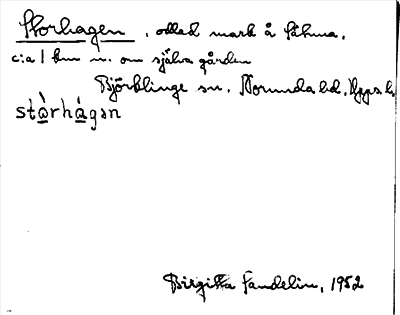 Storhagen, odlad mark å Såhma,
c:a 1 km n. om själva gården
Björklinge sn. Norunda hd. Upps. l.
stòrhágən
Birgitta Sandelin, 1952